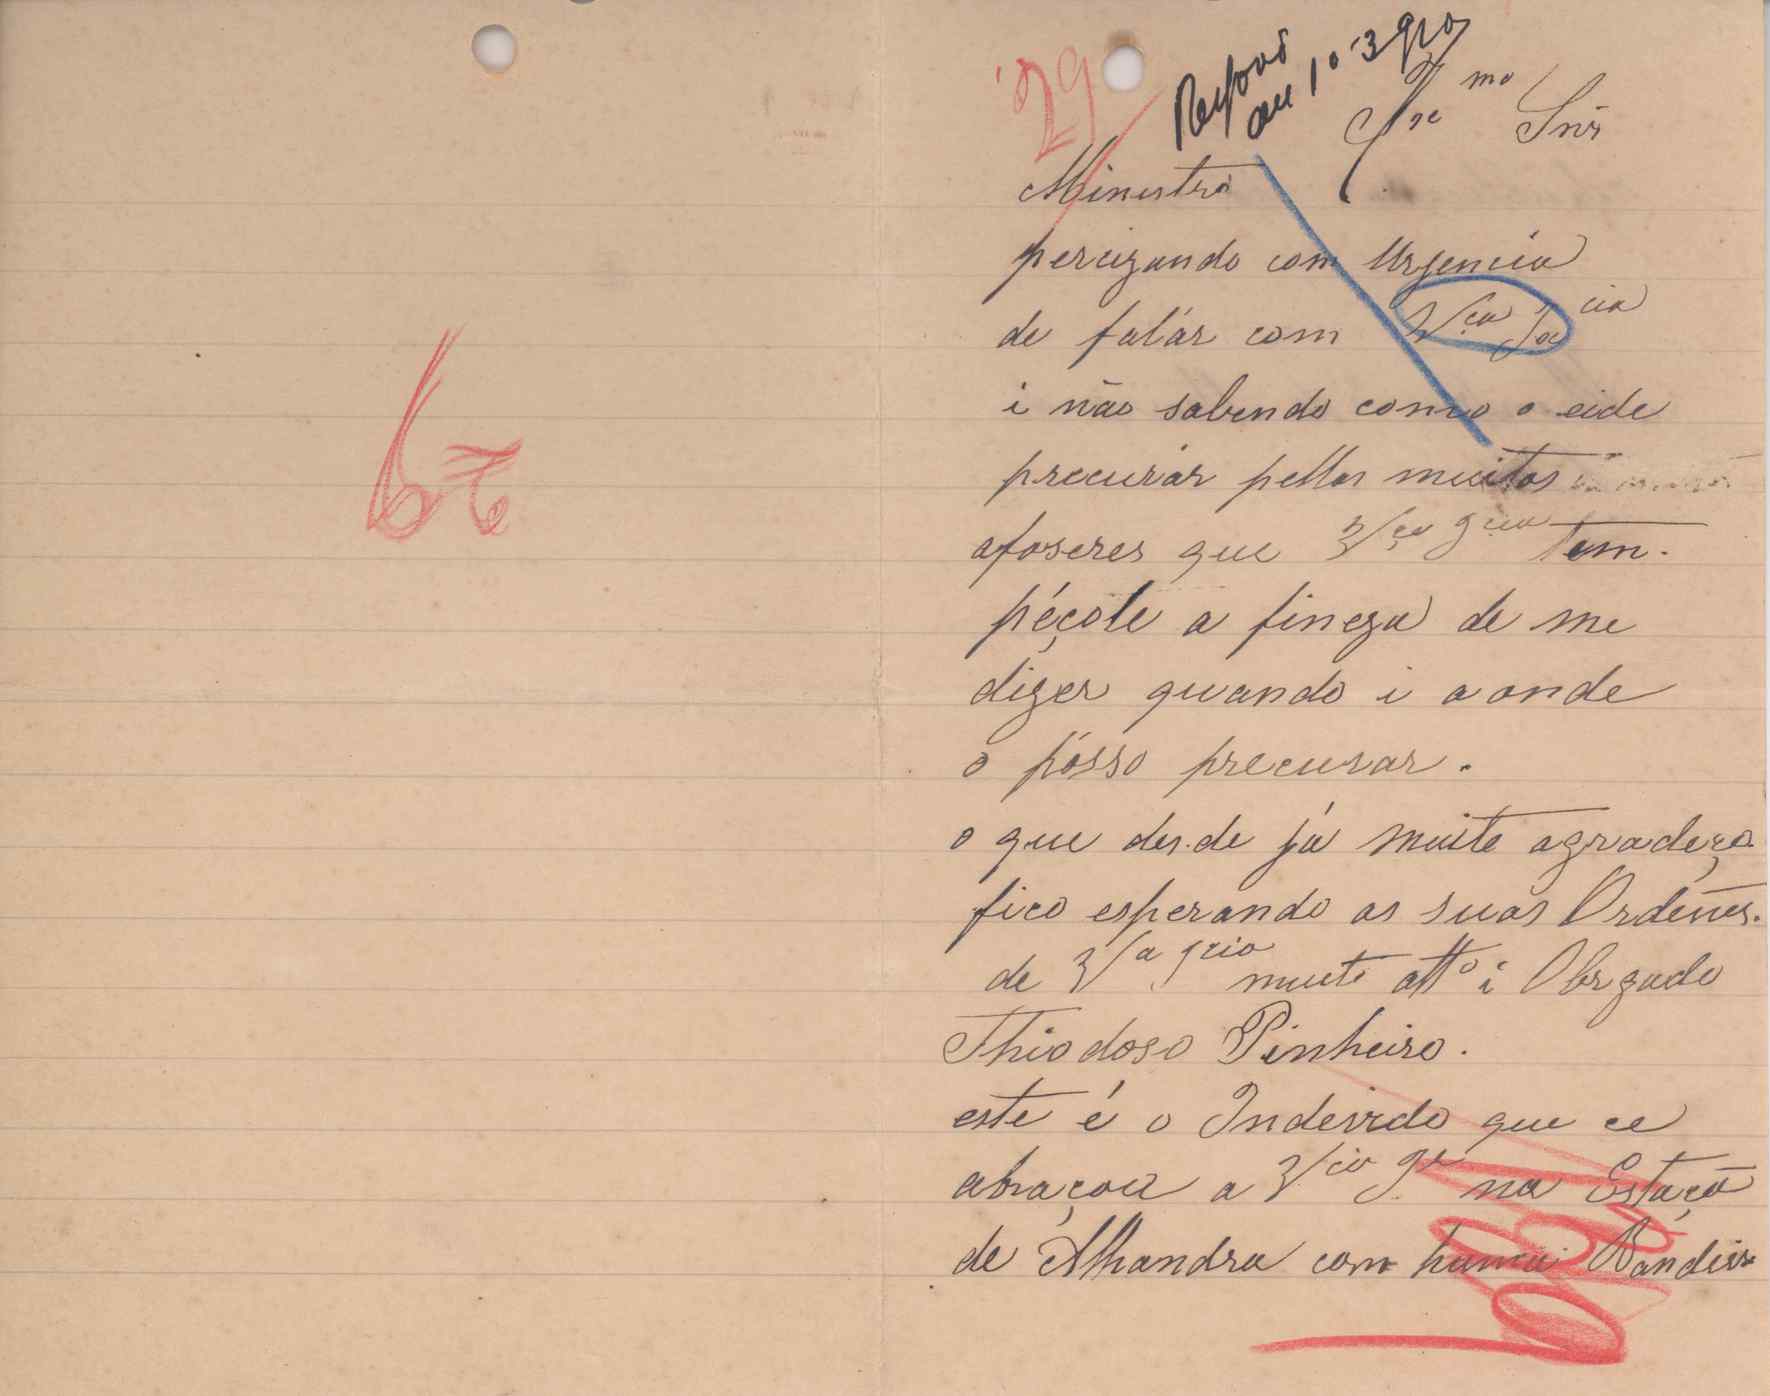 29
Respond
em 10-3-910
Exmo Snr
Ministro
percizando com Urgencia
de falár com Vca Excia
i não sabendo como o eide
precurár pellos muitos
afaseres que Vca Excia tem.
péçole a fineza de me
dizer quando i aonde
o pósso precurar.
o que des.de já muite agradeço
fico esperando as suas Ordeñes.
de Va Excia muite atto i Obrgado
Thiodoso Pinheiro.
este é o Indevido que ce
abraçou a Vcia Ex na Estação
de Alhandra com huma Bandeir